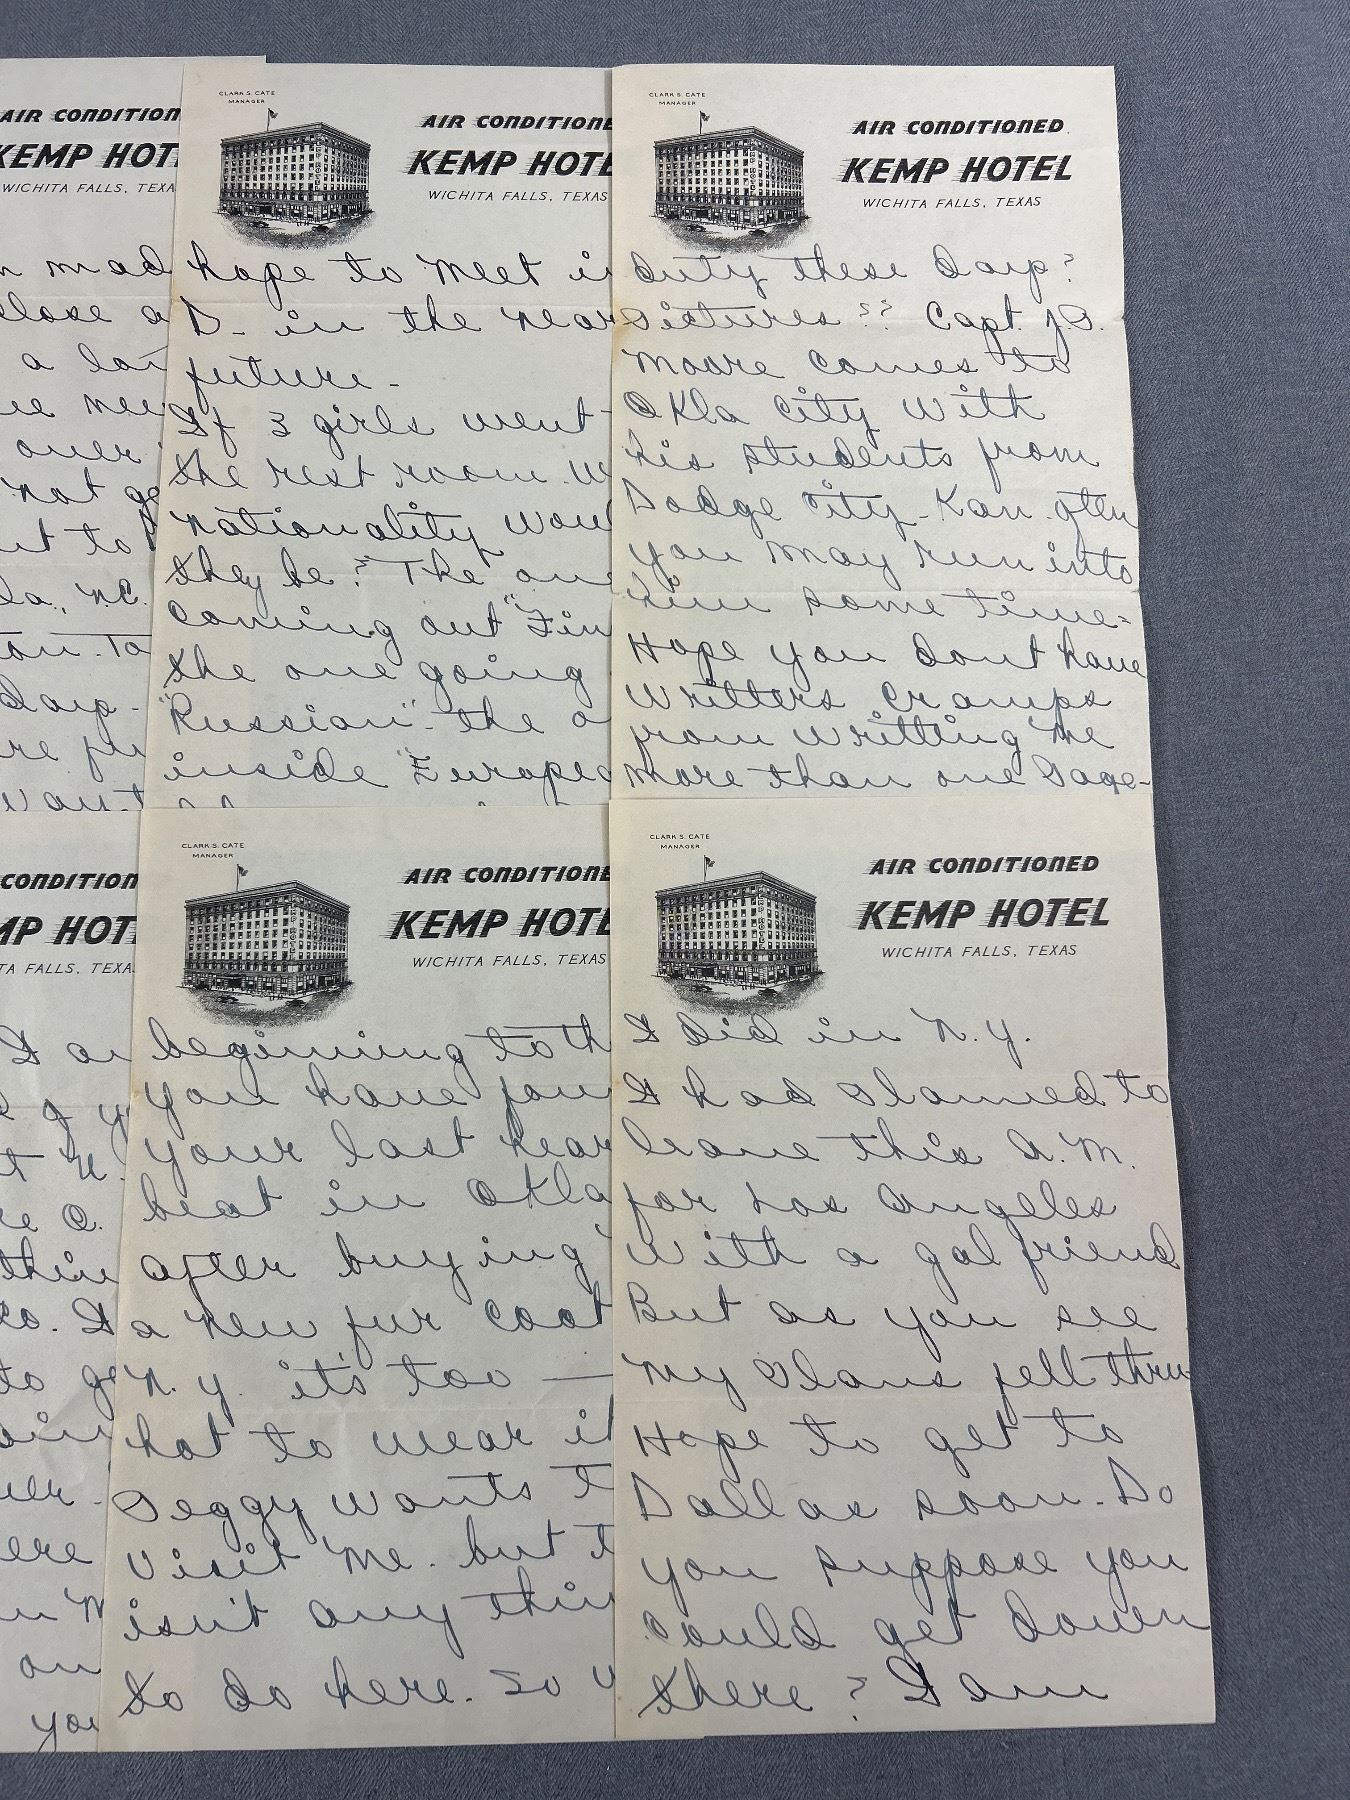 AIR CONDITION
KEMP HOT
WICHITA FALLS, TEXA
mad
close a
a
nee
over
not go
to
la, N.C.
ton. To
Darp-
re
want
CLARK S. CATE
MANAGER
AIR CONDITIONE
KEMP HOTE
WICHITA FALLS, TEXAS
hope to meet in
D- in the near
future-
If 3 girls went
the rest room. W
nationality woul
they be? The one
coming out "Fin
the one going
"Russian" - the o
inside "Europea
CLARK S. CATE
MANAGER
AIR CONDITIONED
KEMP HOTEL
WICHITA FALLS, TEXAS
Duty these Darp?
Pictures?? Capt. J.O.
Moore comes to
Okla City with
his students from
Dodge City-Kan. often
you may run into
him some time-
Hope you dont have
writters cramps
from writting me
more than one Page-
CONDITION
MP HOT
TA FALLS, TEXAS
I
thin
co. I
to go
ver.
ere
on
you
CLARK S. CATE
MANAGER
AIR CONDITIONE
KEMP HOTE
WICHITA FALLS, TEXAS
beginning to th
you have foun
your last hear
beat in Okla
after buying
a new fur coat
N.Y. it's too —
hot to wear it
Peggy wants t
visit me. but t
isn't any thin
to do here. So w
CLARK S. CATE
MANAGER
AIR CONDITIONED
KEMP HOTEL
WICHITA FALLS, TEXAS
I Did in N.Y.
I had Planned to
leave this A.M.
for Los Angeles
with a gal friend
But as you see
my Plans fell thru
Hope to get to
Dallas soon. Do
you suppose you
could get down
there? I am